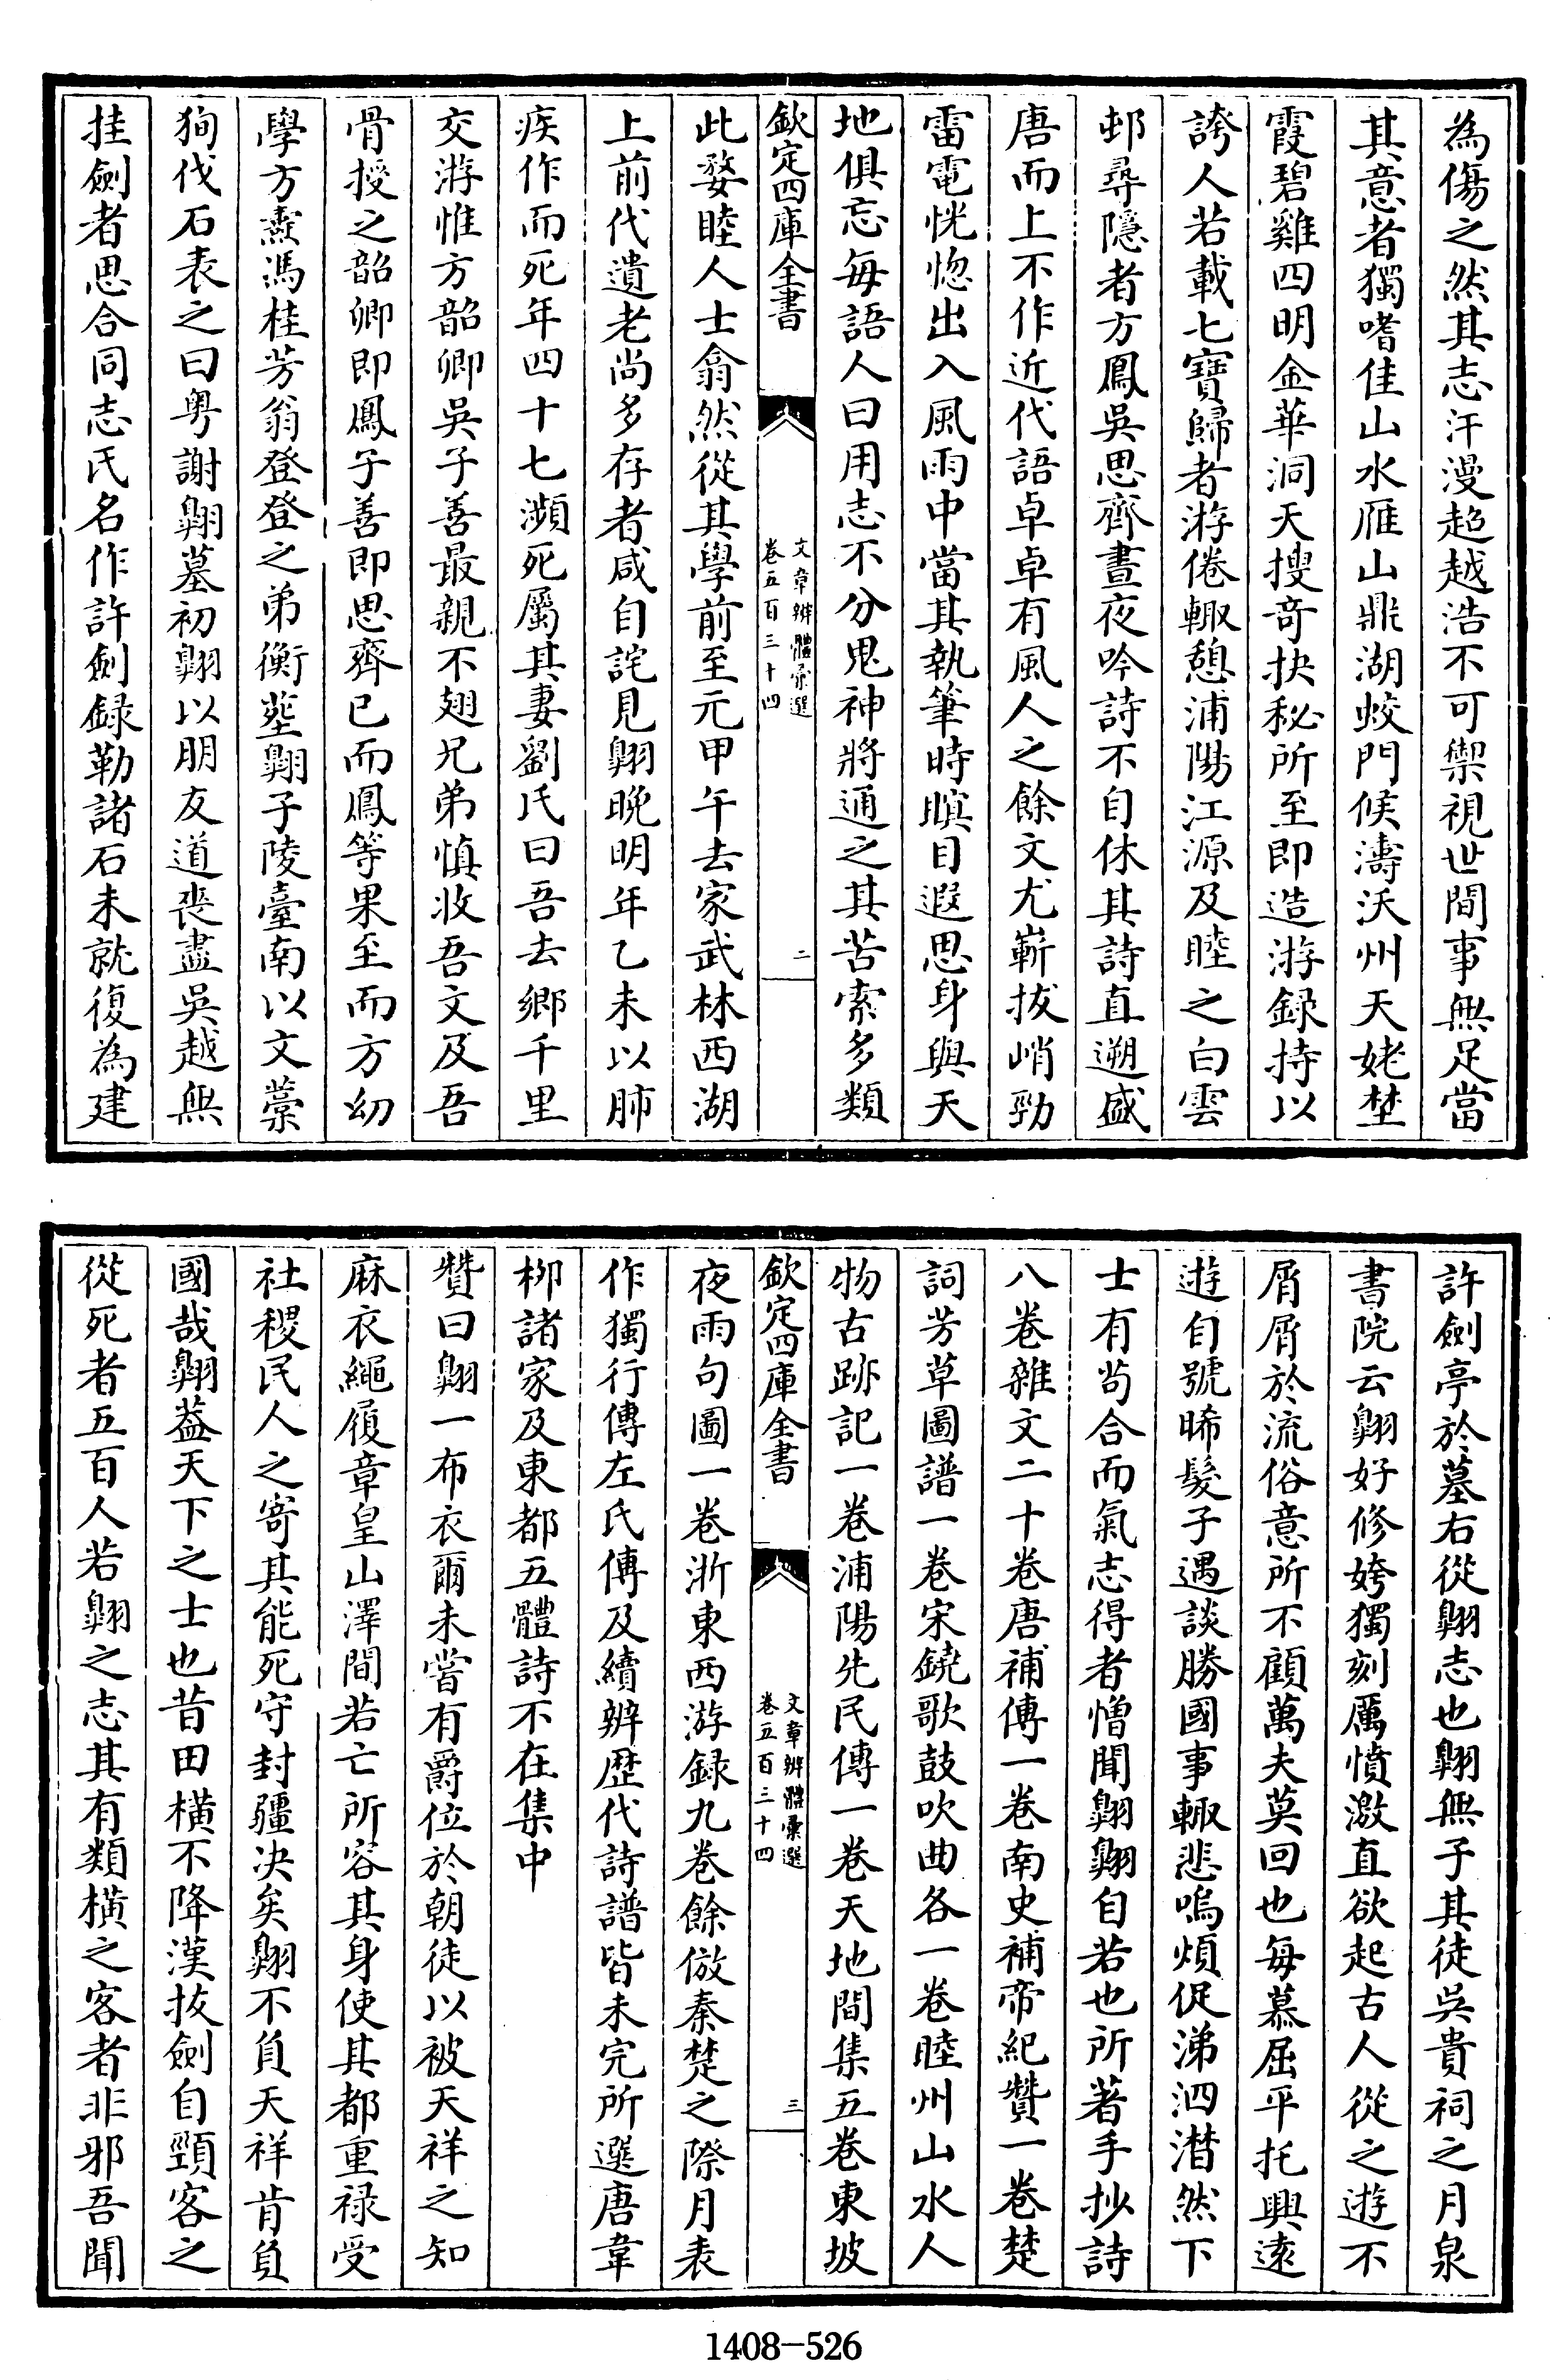 為傷之然其志汗漫超越浩不可禦視世間事無足當
其意者獨嗜佳山水雁山鼎湖蛟門候濤沃州天姥埜
霞碧雞四明金華洞天搜奇抉秘所至即造游録持以
誇人若載七寶歸者游倦輙憩浦陽江源及睦之白雲
邨尋隱者方鳳吳思齊晝夜吟詩不自休其詩直遡盛
唐而上不作近代語卓卓有風人之餘文尤嶄拔峭勁
雷電恍惚出入風雨中當其執筆時瞋目遐思身與天
地俱忘每語人曰用志不分鬼神將通之其苦索多類
欽定四庫全書
文章辨體彙選
卷五百三十四
二
此婺睦人士翕然從其學前至元甲午去家武林西湖
上前代遺老尚多存者咸自詫見翺晚明年乙未以肺
疾作而死年四十七瀕死屬其妻劉氏曰吾去鄉千里
交游惟方韶卿吳子善最親不翅兄弟慎收吾文及吾
骨授之韶卿即鳳子善即思齊已而鳳等果至而方幼
學方燾馮桂芳翁登登之弟衡塟翺子陵臺南以文藁
狥伐石表之曰粤謝翺墓初翺以朋友道喪盡吳越無
挂劍者思合同志氏名作許劍録勒諸石未就復為建
許劍亭於墓右從翺志也翺無子其徒吳貴祠之月泉
書院云翺好修姱獨刻厲憤激直欲起古人從之遊不
屑屑於流俗意所不顧萬夫莫回也每慕屈平托興遠
遊自號晞髮子遇談勝國事輙悲嗚煩促涕泗潸然下
士有茍合而氣志得者憎聞翺翺自若也所著手抄詩
八卷雜文二十卷唐補傳一卷南史補帝紀贊一卷楚
詞芳草圖譜一卷宋鐃歌鼓吹曲各一卷睦州山水人
物古跡記一卷浦陽先民傳一卷天地間集五卷東坡
欽定四庫全書
文章辨體彙選
卷五百三十四
三
夜雨句圖一卷浙東西游録九卷餘倣秦楚之際月表
作獨行傳左氏傳及續辨歴代詩譜皆未完所選唐韋
柳諸家及東都五體詩不在集中
贊曰翺一布衣爾未嘗有爵位於朝徒以被天祥之知
麻衣繩履章皇山澤間若亡所容其身使其都重祿受
社稷民人之寄其能死守封疆决矣翺不負天祥肯負
國哉翺葢天下之士也昔田横不降漢拔劍自剄客之
從死者五百人若翺之志其有類橫之客者非邪吾聞
1408-526